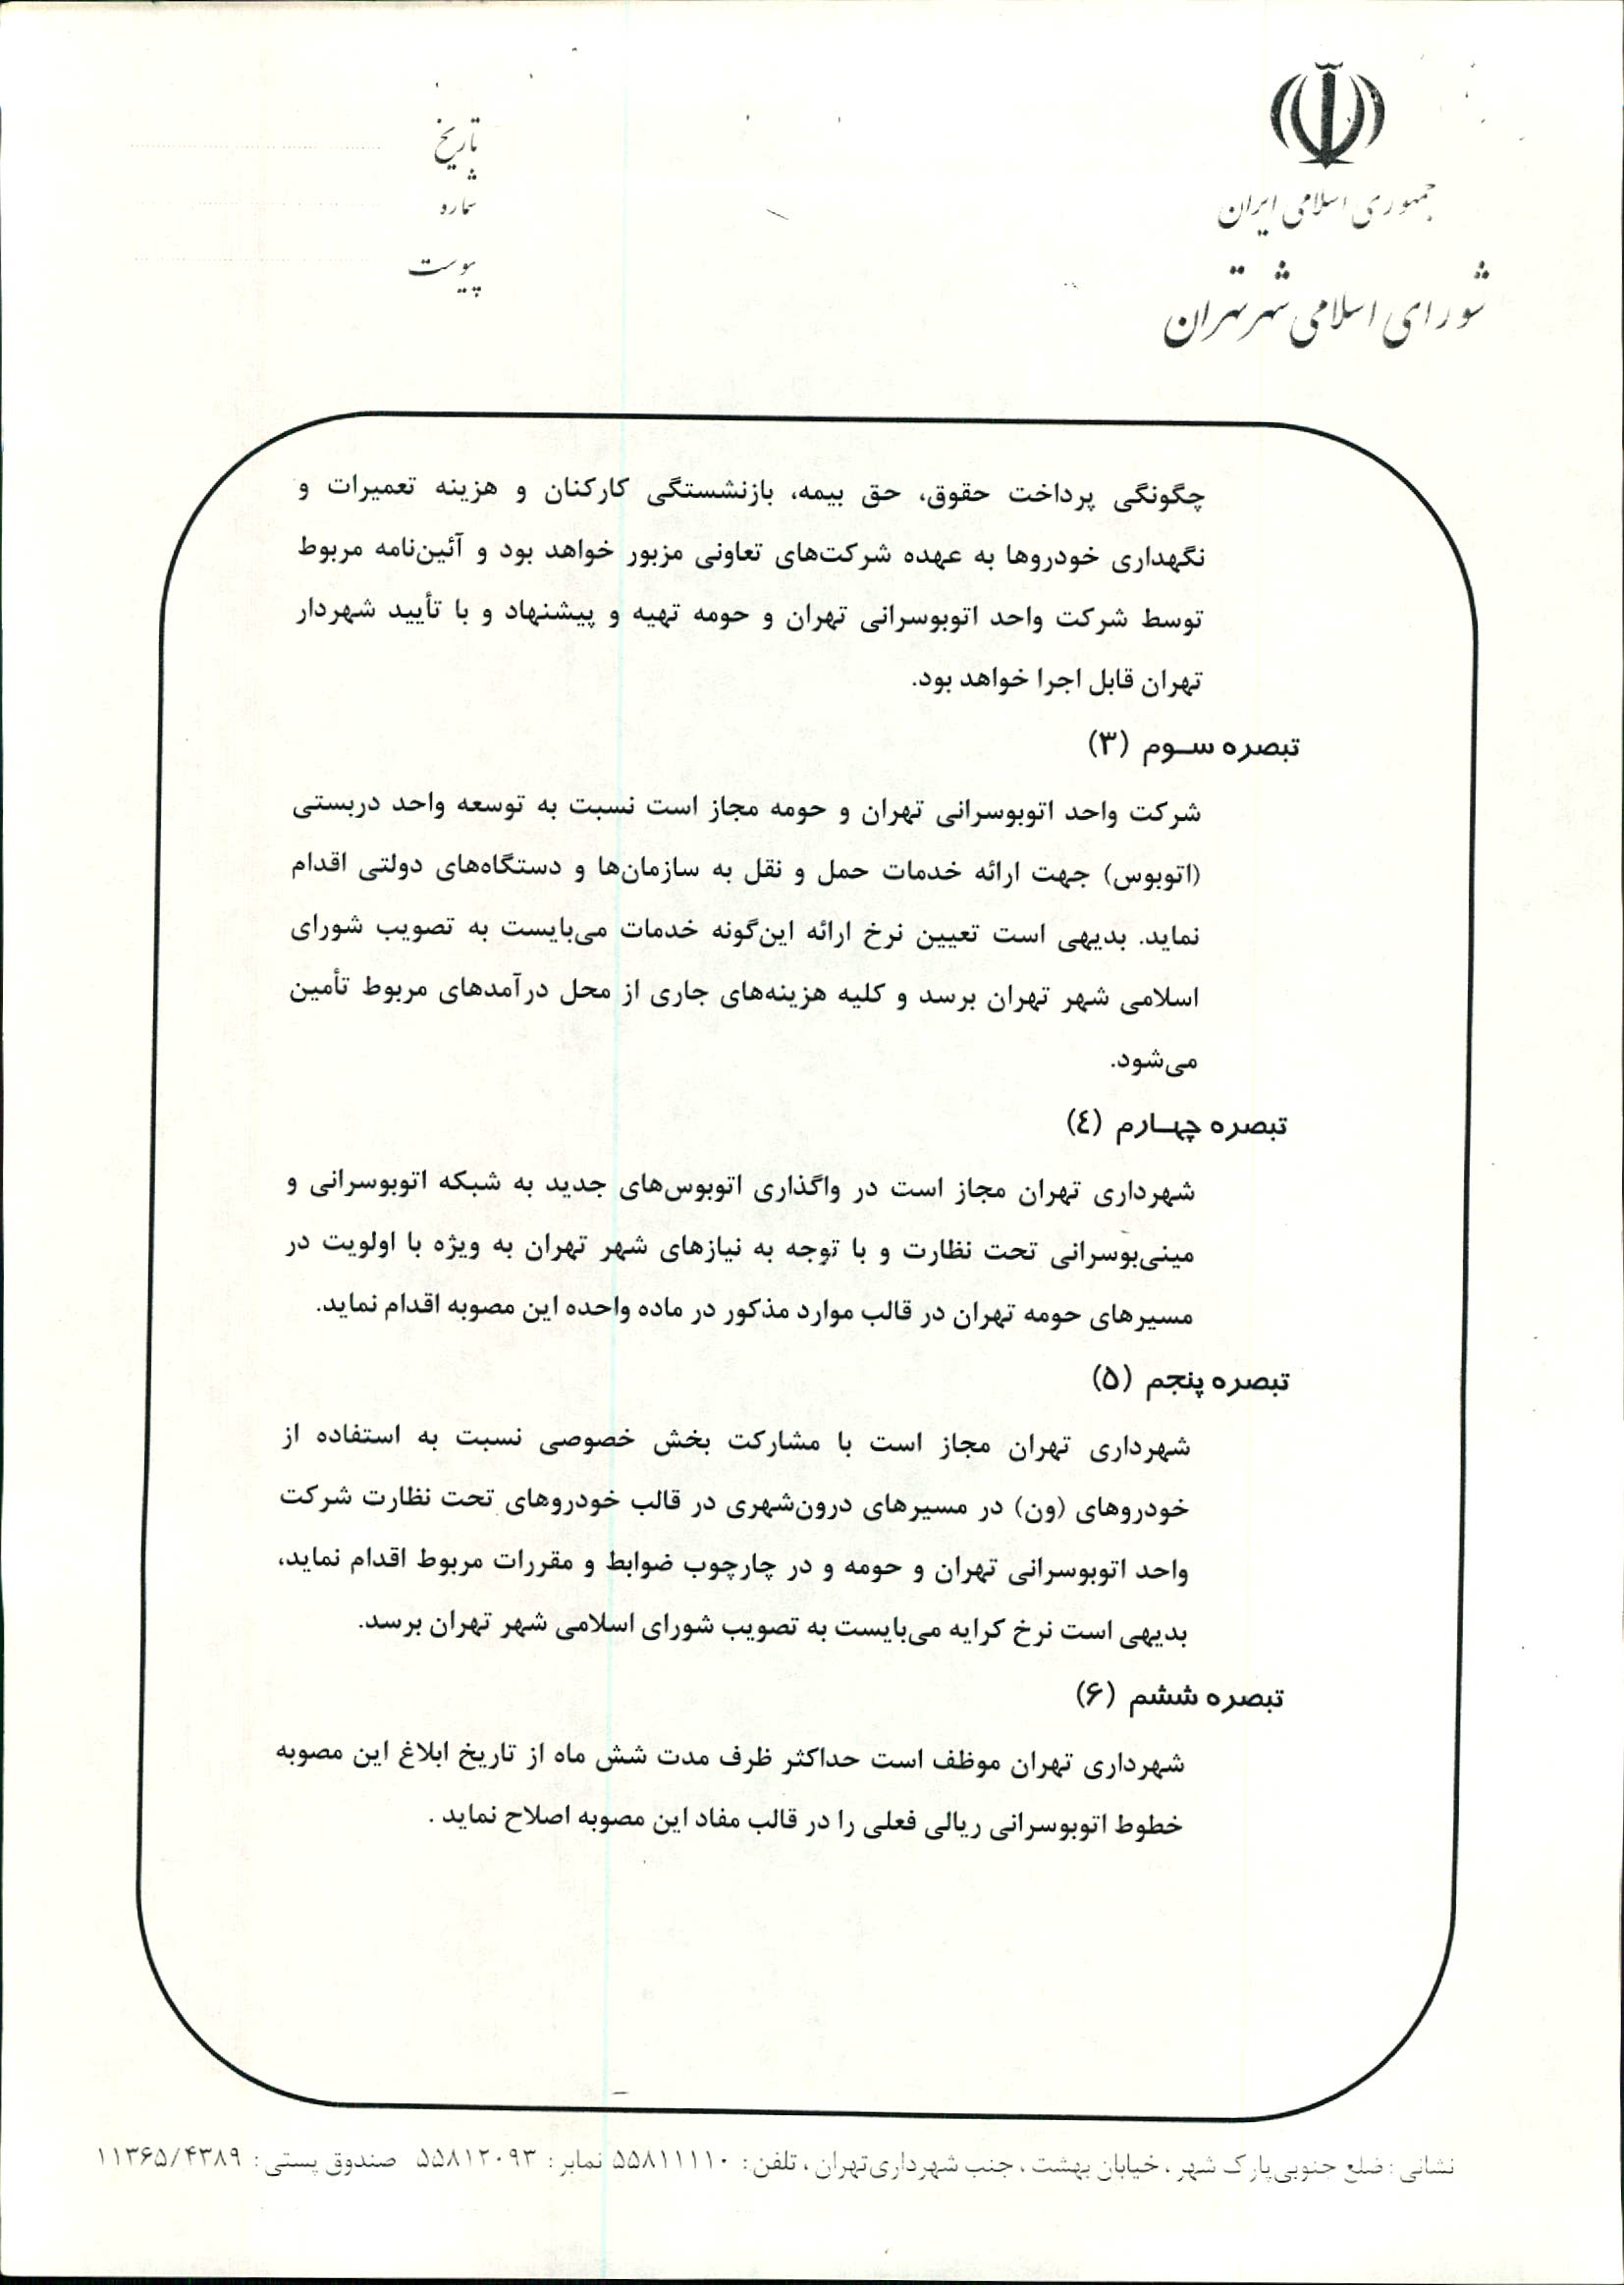 جمهوری اسلامی ایران
شورای اسلامی شهر تهران
تاریخ
شماره
پیوست
چگونگی پرداخت حقوق، حق بیمه، بازنشستگی کارکنان و هزینه تعمیرات و
نگهداری خودروها به عهده شرکت‌های تعاونی مزبور خواهد بود و آئین‌نامه مربوط
توسط شرکت واحد اتوبوسرانی تهران و حومه تهیه و پیشنهاد و با تأیید شهردار
تهران قابل اجرا خواهد بود.
تبصره سـوم (۳)
شرکت واحد اتوبوسرانی تهران و حومه مجاز است نسبت به توسعه واحد دربستی
(اتوبوس) جهت ارائه خدمات حمل و نقل به سازمان‌ها و دستگاه‌های دولتی اقدام
نماید. بدیهی است تعیین نرخ ارائه این‌گونه خدمات می‌بایست به تصویب شورای
اسلامی شهر تهران برسد و کلیه هزینه‌های جاری از محل درآمدهای مربوط تأمین
می‌شود.
تبصره چهـارم (٤)
شهرداری تهران مجاز است در واگذاری اتوبوس‌های جدید به شبکه اتوبوسرانی و
مینی‌بوسرانی تحت نظارت و با توجه به نیازهای شهر تهران به ویژه با اولویت در
مسیرهای حومه تهران در قالب موارد مذکور در ماده واحده این مصوبه اقدام نماید.
تبصره پنجم (۵)
شهرداری تهران مجاز است با مشارکت بخش خصوصی نسبت به استفاده از
خودروهای (ون) در مسیرهای درون‌شهری در قالب خودروهای تحت نظارت شرکت
واحد اتوبوسرانی تهران و حومه و در چارچوب ضوابط و مقررات مربوط اقدام نماید،
بدیهی است نرخ کرایه می‌بایست به تصویب شورای اسلامی شهر تهران برسد.
تبصره ششم (۶)
شهرداری تهران موظف است حداکثر ظرف مدت شش ماه از تاریخ ابلاغ این مصوبه
خطوط اتوبوسرانی ریالی فعلی را در قالب مفاد این مصوبه اصلاح نماید .
نشانی : ضلع جنوبی پارک شهر ، خیابان بهشت ، جنب شهرداری تهران ، تلفن : ۵۵۸۱۱۱۱۰ نمابر : ۵۵۸۱۲۰۹۳ صندوق پستی : ۱۱۳۶۵/۴۳۸۹